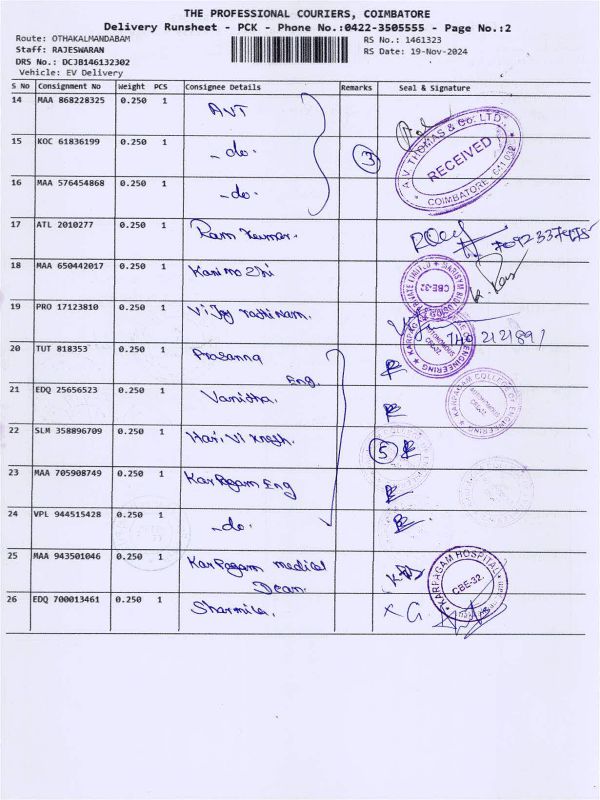 THE PROFESSIONAL COURIERS, COIMBATORE
Delivery Runsheet - PCK - Phone No.:0422-3505555 - Page No.:2
Route: OTHAKALMANDABAM
RS No.: 1461323
Staff: RAJESWARAN
RS Date: 19-Nov-2024
DRS No.: DCJB146132302
Vehicle: EV Delivery
S No Consignment No Weight PCS Consignee Details Remarks Seal & Signature
14 MAA 868228325 0.250 1 AVT
15 KOC 61836199 0.250 1 - do - 3
A.V. THOMAS & Co. LTD., RECEIVED COIMBATORE - 641 032
16 MAA 576454868 0.250 1 - do -
17 ATL 2010277 0.250 1 Ram Kumar.
18 MAA 650442017 0.250 1
CBE-32
19 PRO 17123810 0.250 1 Vijay rathinam.
20 TUT 818353 0.250 1 Prasanna
Eng.
21 EDQ 25656523 0.250 1 Vanitha.
KARPAGAM COLLEGE OF ENGINEERING
22 SLM 358896709 0.250 1 5
23 MAA 705908749 0.250 1 Karpagam Eng
24 VPL 944515428 0.250 1 - do -
25 MAA 943501046 0.250 1 Karpagam medical
Dean.
KARPAGAM HOSPITAL CBE-32.
26 EDQ 700013461 0.250 1 Sharmila.